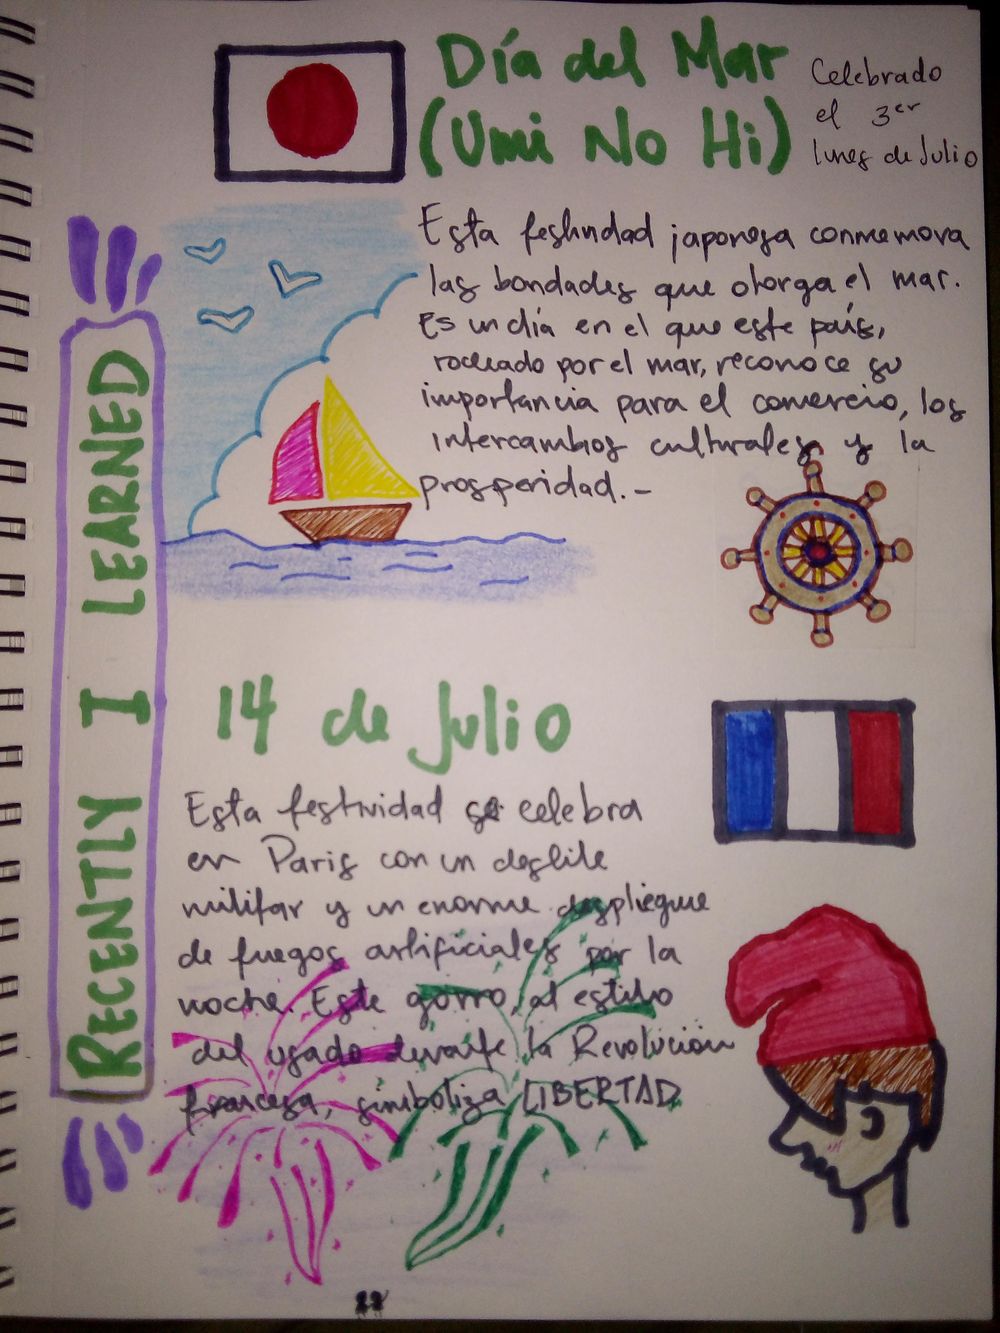 Día del Mar
(Umi No Hi)
Celebrado
el 3er
lunes de Julio
Esta festividad japonesa conmemora
las bondades que otorga el mar.
Es un día en el que este país,
rodeado por el mar, reconoce su
importancia para el comercio, los
intercambios culturales y la
prosperidad.-
RECENTLY I LEARNED
14 de Julio
Esta festividad se celebra
en Paris con un desfile
militar y un enorme despliegue
de fuegos artificiales por la
noche. Este gorro, al estilo
del usado durante la Revolución
francesa, simboliza LIBERTAD